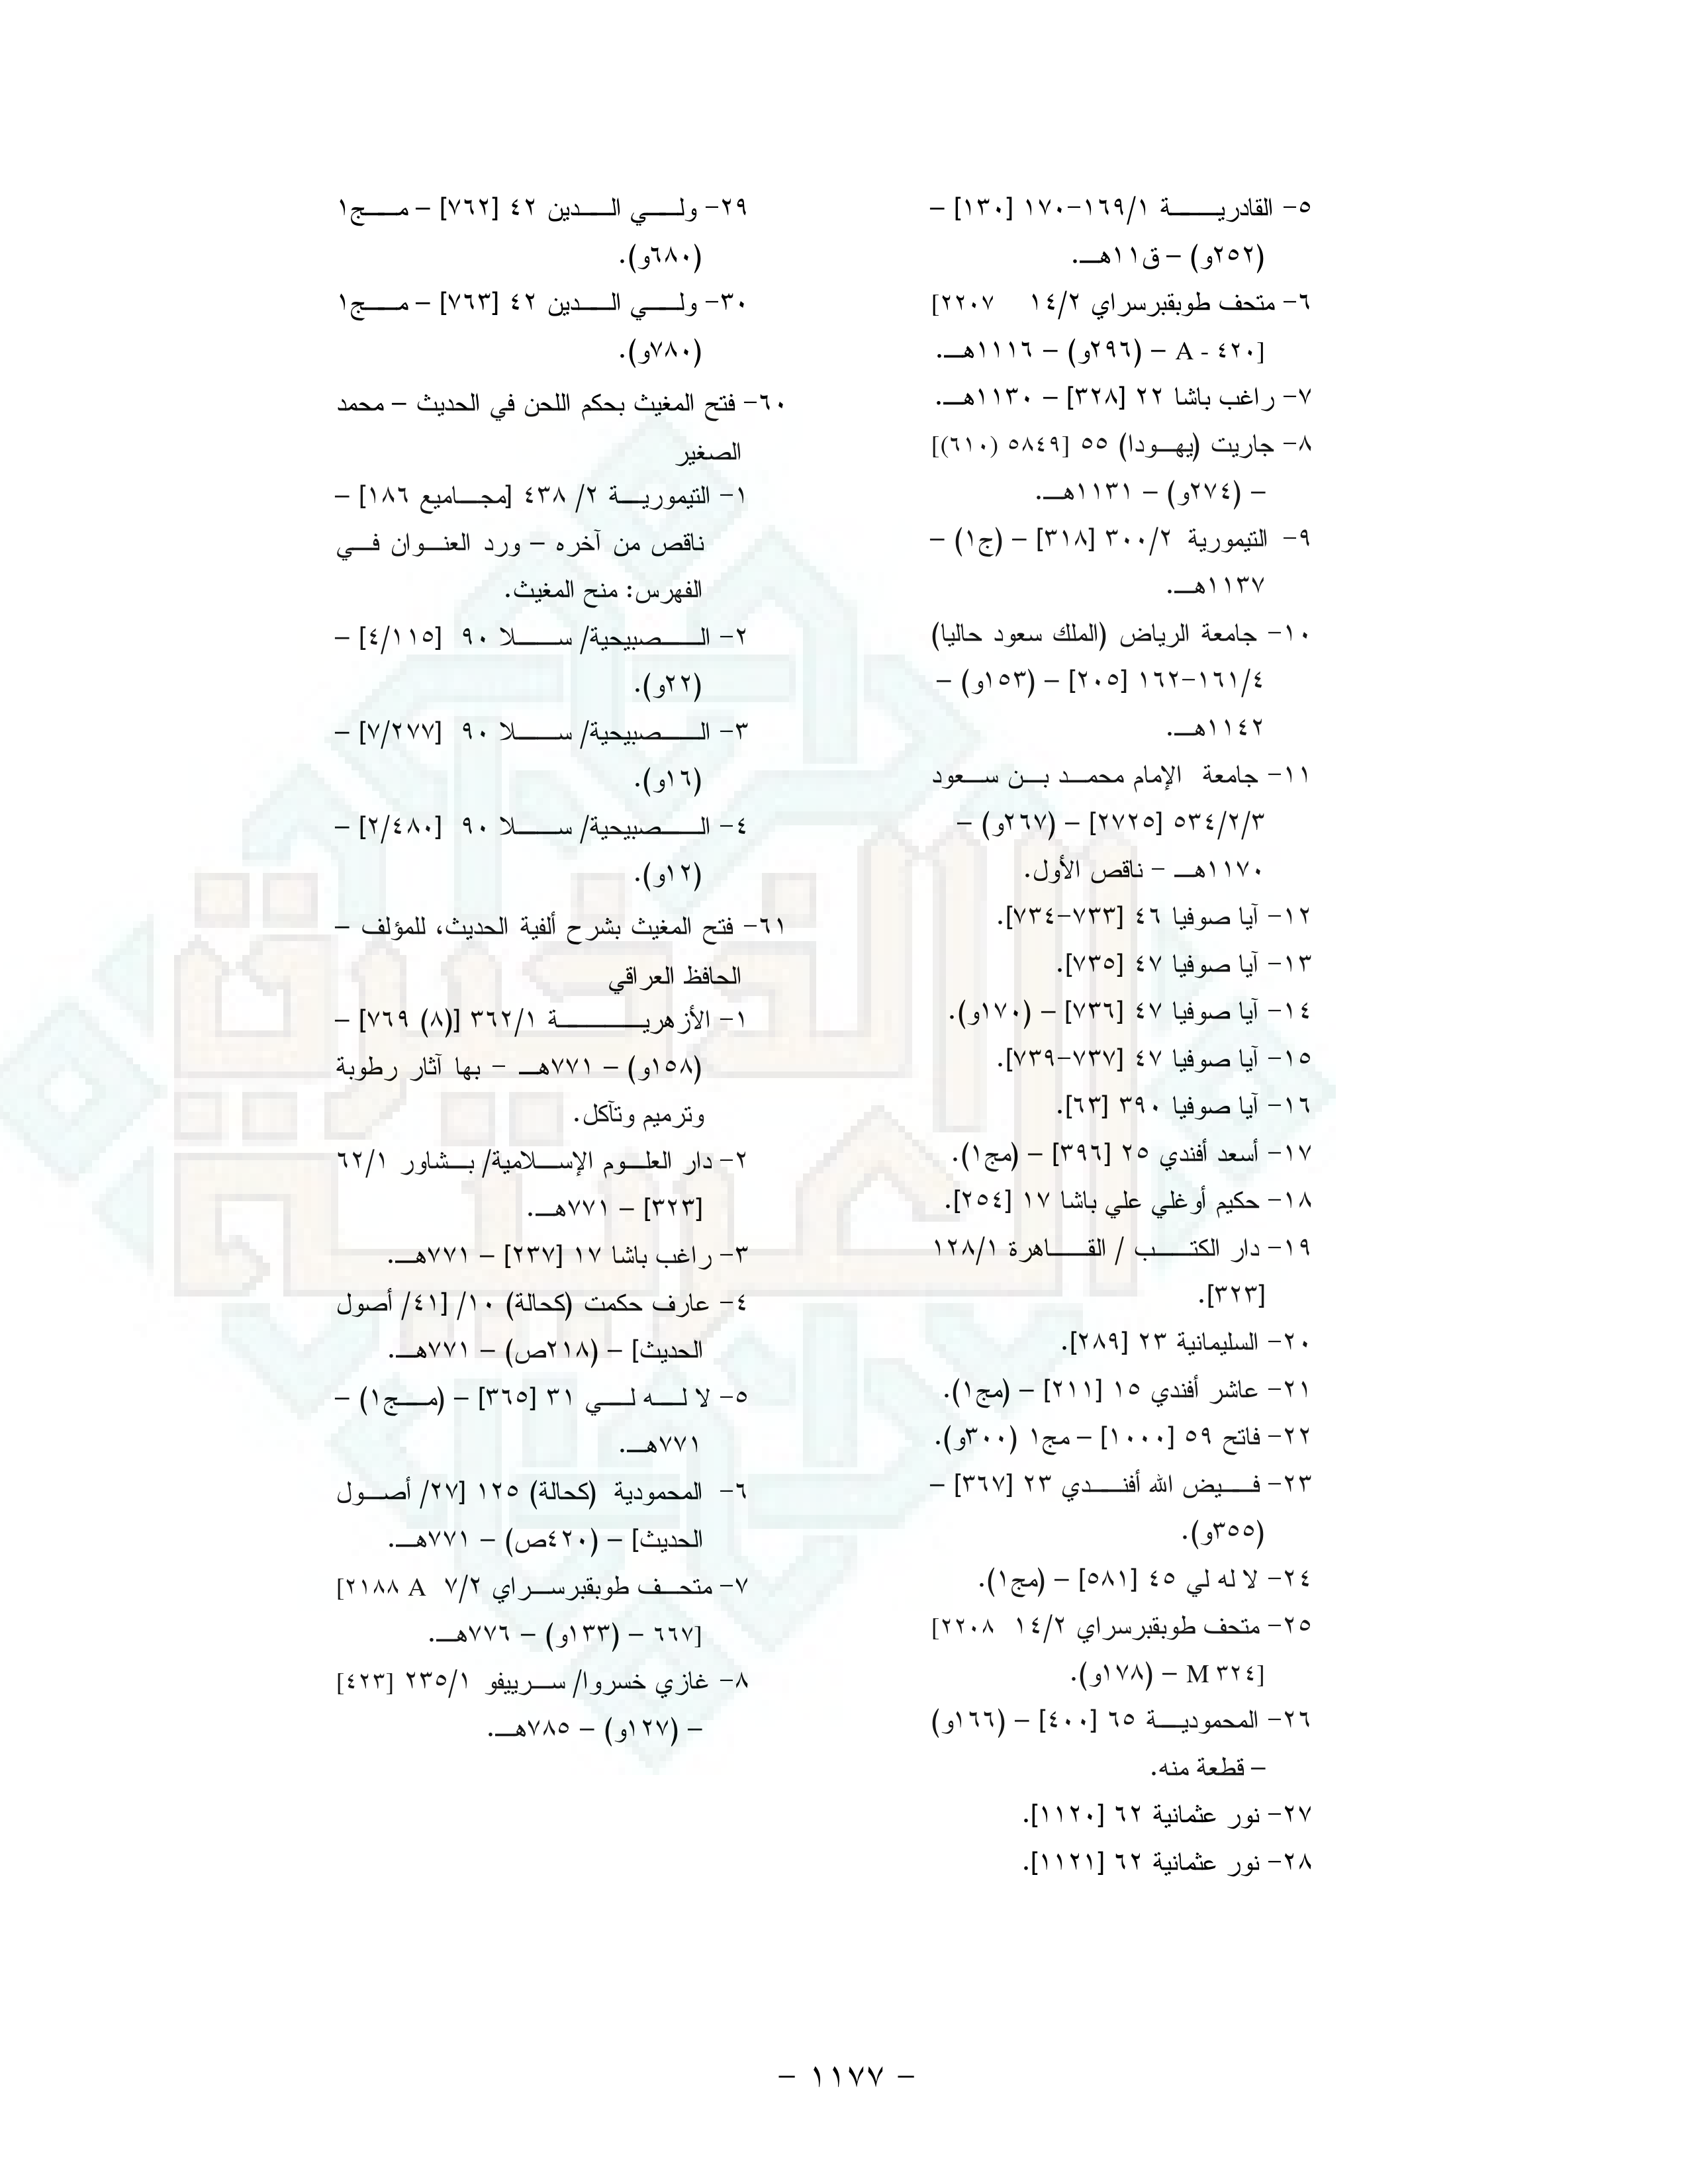 ٥- القادرية ١/١٦٩-١٧٠ [١٣٠] –
(٢٥٢و) – ق١١هـ.
٦- متحف طوبقبرسراي ١٤/٢ [٢٢٠٧
A - ٤٢٠] – (٢٩٦و) – ١١١٦هـ.
٧- راغب باشا ٢٢ [٣٢٨] – ١١٣٠هـ.
٨- جاريت (يهودا) ٥٥ [٥٨٤٩ (٦١٠)]
– (٢٧٤و) – ١١٣١هـ.
٩- التيمورية ٣٠٠/٢ [٣١٨] – (ج١) –
١١٣٧هـ.
١٠- جامعة الرياض (الملك سعود حاليا)
١٦١/٤-١٦٢ [٢٠٥] – (١٥٣و) –
١١٤٢هـ.
١١- جامعة الإمام محمد بن سعود
٥٣٤/٢/٣ [٢٧٢٥] – (٢٦٧و) –
١١٧٠هـ – ناقص الأول.
١٢- آيا صوفيا ٤٦ [٧٣٣-٧٣٤].
١٣- آيا صوفيا ٤٧ [٧٣٥].
١٤- آيا صوفيا ٤٧ [٧٣٦] – (١٧٠و).
١٥- آيا صوفيا ٤٧ [٧٣٧-٧٣٩].
١٦- آيا صوفيا ٣٩٠ [٦٣].
١٧- أسعد أفندي ٢٥ [٣٩٦] – (مج١).
١٨- حكيم أوغلي علي باشا ١٧ [٢٥٤].
١٩- دار الكتب / القاهرة ١٢٨/١
[٣٢٣].
٢٠- السليمانية ٢٣ [٢٨٩].
٢١- عاشر أفندي ١٥ [٢١١] – (مج١).
٢٢- فاتح ٥٩ [١٠٠٠] – مج١ (٣٠٠و).
٢٣- فيض الله أفندي ٢٣ [٣٦٧] –
(٣٥٥و).
٢٤- لا له لي ٤٥ [٥٨١] – (مج١).
٢٥- متحف طوبقبرسراي ١٤/٢ [٢٢٠٨
M ٣٢٤] – (١٧٨و).
٢٦- المحمودية ٦٥ [٤٠٠] – (١٦٦و)
– قطعة منه.
٢٧- نور عثمانية ٦٢ [١١٢٠].
٢٨- نور عثمانية ٦٢ [١١٢١].
٢٩- ولي الدين ٤٢ [٧٦٢] – مج١
(٦٨٠و).
٣٠- ولي الدين ٤٢ [٧٦٣] – مج١
(٧٨٠و).
٦٠- فتح المغيث بحكم اللحن في الحديث – محمد
الصغير
١- التيمورية ٢/ ٤٣٨ [مجاميع ١٨٦] –
ناقص من آخره – ورد العنوان في
الفهرس: منح المغيث.
٢- الصبيحية/ سلا ٩٠ [٤/١١٥] –
(٢٢و).
٣- الصبيحية/ سلا ٩٠ [٧/٢٧٧] –
(١٦و).
٤- الصبيحية/ سلا ٩٠ [٢/٤٨٠] –
(١٢و).
٦١- فتح المغيث بشرح ألفية الحديث، للمؤلف –
الحافظ العراقي
١- الأزهرية ٣٦٢/١ [(٨) ٧٦٩] –
(١٥٨و) – ٧٧١هـ – بها آثار رطوبة
وترميم وتآكل.
٢- دار العلوم الإسلامية/ بشاور ٦٢/١
[٣٢٣] – ٧٧١هـ.
٣- راغب باشا ١٧ [٢٣٧] – ٧٧١هـ.
٤- عارف حكمت (كحالة) ١٠/ [٤١/ أصول
الحديث] – (٢١٨ص) – ٧٧١هـ.
٥- لا له لي ٣١ [٣٦٥] – (مج١) –
٧٧١هـ.
٦- المحمودية (كحالة) ١٢٥ [٢٧/ أصول
الحديث] – (٤٢٠ص) – ٧٧١هـ.
٧- متحف طوبقبرسراي ٧/٢ [٢١٨٨ A
٦٦٧] – (١٣٣و) – ٧٧٦هـ.
٨- غازي خسروا/ سرييفو ٢٣٥/١ [٤٢٣]
– (١٢٧و) – ٧٨٥هـ.
– ١١٧٧ –